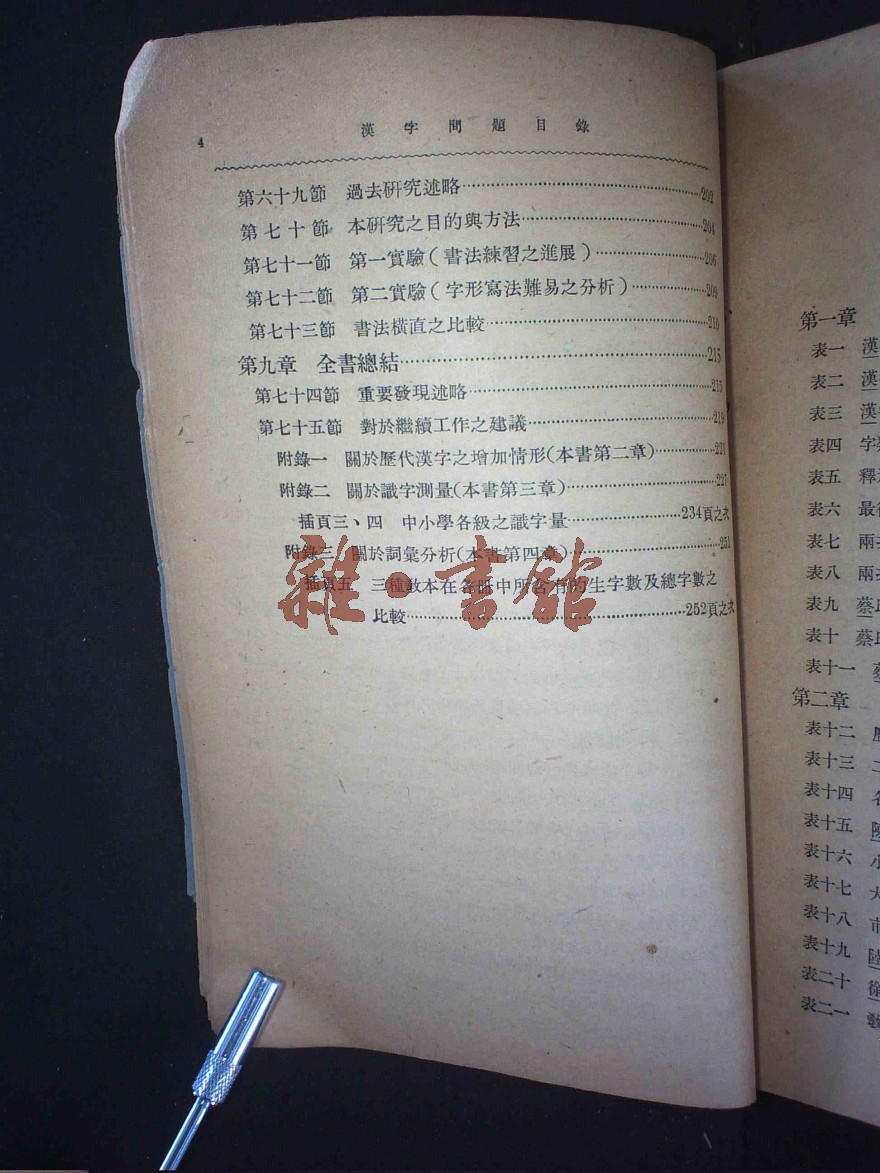 4 漢字問題目錄
第六十九節 過去研究述略………202
第七十節 本研究之目的與方法………204
第七十一節 第一實驗(書法練習之進展)………206
第七十二節 第二實驗(字形寫法難易之分析)………209
第七十三節 書法橫直之比較………210
第九章 全書總結………215
第七十四節 重要發現述略………215
第七十五節 對於繼續工作之建議………219
附錄一 關於歷代漢字之增加情形(本書第二章)………221
附錄二 關於識字測量(本書第三章)………227
插頁三、四 中小學各級之識字量………234頁之次
附錄三 關於詞彙分析(本書第四章)………251
插頁五 三種敎本在各冊中所含有的生字數及總字數之
比較………252頁之次
雜·書館
第一章
表一 漢
表二 漢
表三 漢
表四 字
表五 釋
表六 最
表七 兩
表八 兩
表九 蔡
表十 蔡
表十一
第二章
表十二
表十三
表十四
表十五
表十六 小
表十七 大
表十八 市
表十九 陸
表二十
表二一